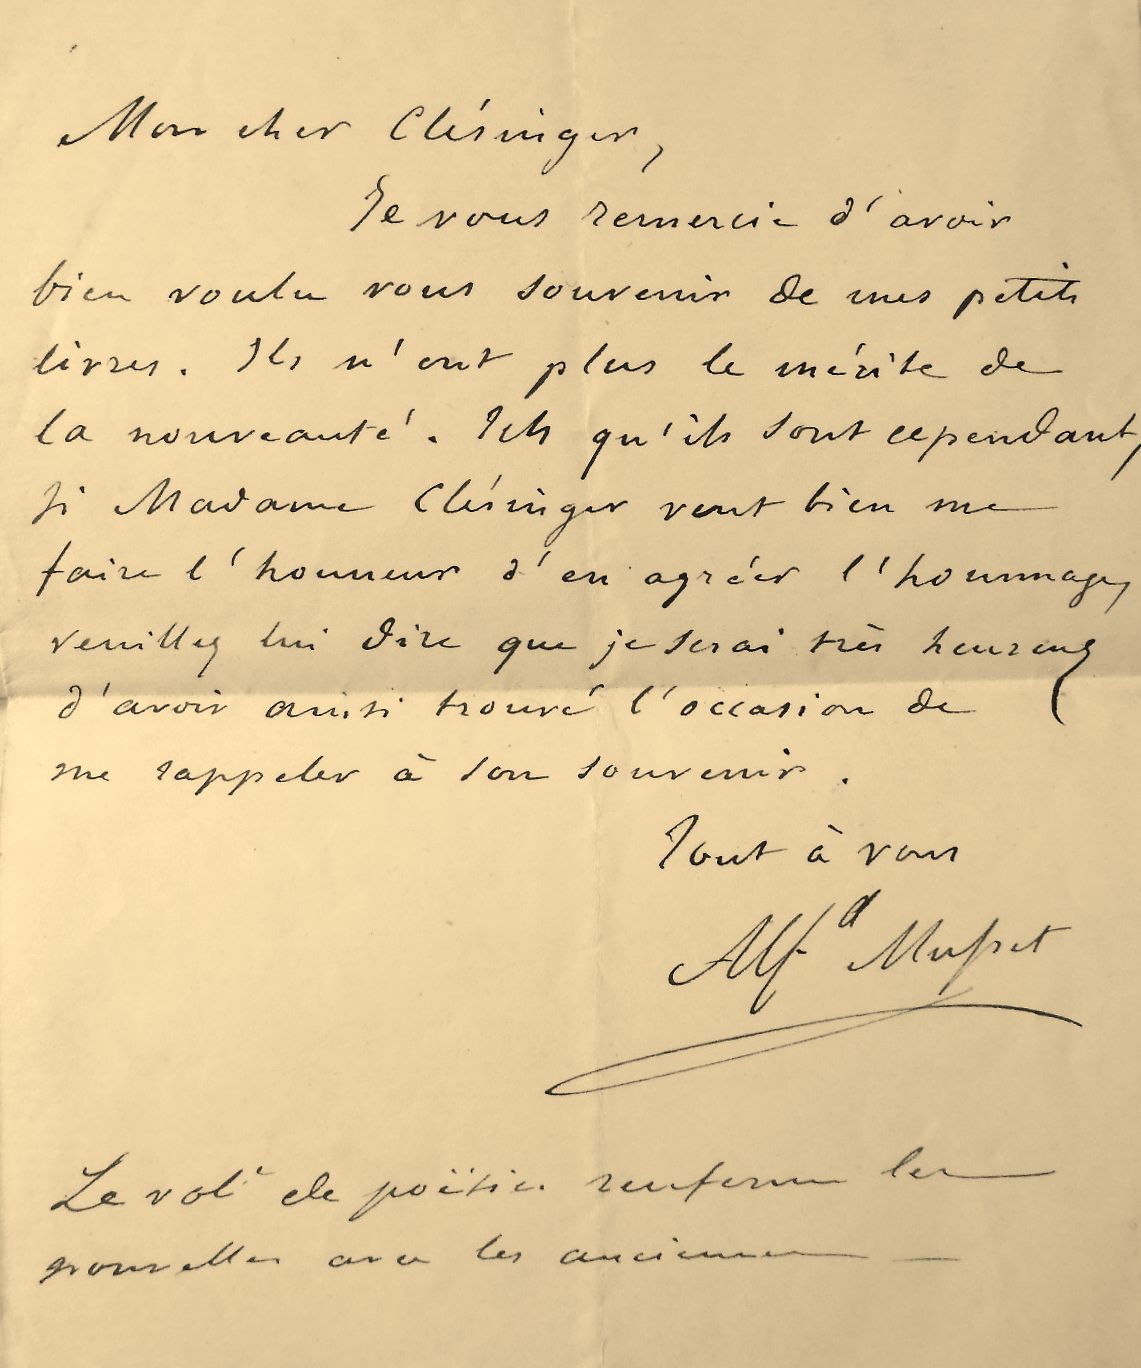 Mon cher Clésinger,
Je vous remercie d'avoir
bien voulu vous souvenir de mes petits
livres. Ils n'ont plus le mérite de
la nouveauté. Tels qu'ils sont cependant,
si Madame Clésinger veut bien me
faire l'honneur d'en agréer l'hommage,
veuillez lui dire que je serai très heureux
d'avoir ainsi trouvé l'occasion de
me rappeler à son souvenir.
Tout à vous
Alfd Musset
Le vol. de poësies renferme les
nouvelles avec les anciennes —